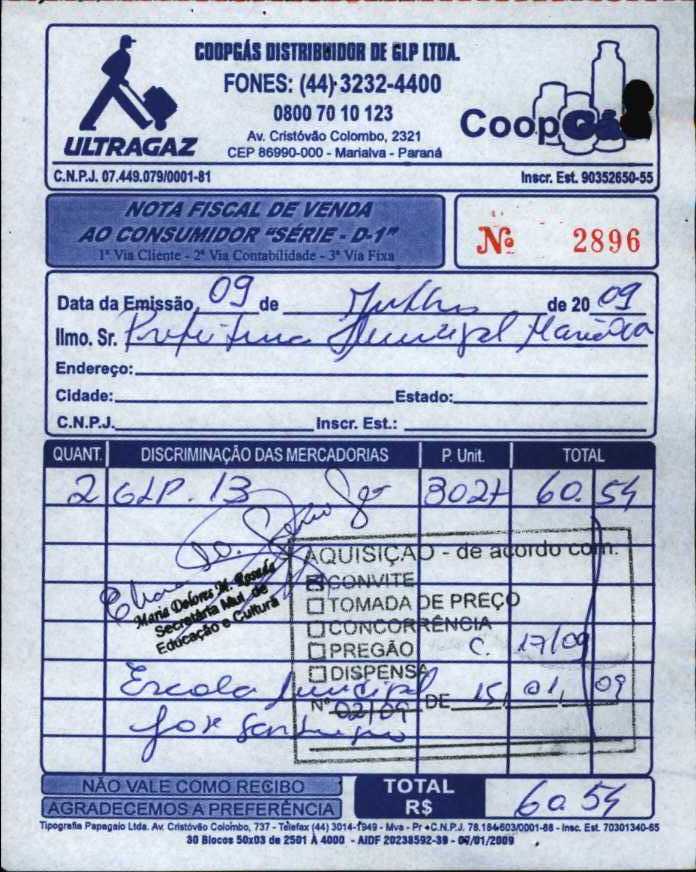 COOPGÁS DISTRIBUIDOR DE GLP LTDA.
FONES: (44) 3232-4400
0800 70 10 123
Av. Cristóvão Colombo, 2321
CEP 86990-000 - Marialva - Paraná
ULTRAGAZ
CoopGás
C.N.P.J. 07.449.079/0001-81 Inscr. Est. 90352650-55
NOTA FISCAL DE VENDA
AO CONSUMIDOR "SÉRIE - D-1"
1ª Via Cliente - 2ª Via Contabilidade - 3ª Via Fixa
Nº 2896
Data da Emissão 09 de Julho de 2009
Ilmo. Sr. Prefeitura Municipal Marialva
Endereço:
Cidade: Estado:
C.N.P.J. Inscr. Est.:
QUANT. DISCRIMINAÇÃO DAS MERCADORIAS P. Unit. TOTAL
2 GLP. 13 3027 60.54
AQUISIÇÃO - de acordo com:
CONVITE
TOMADA DE PREÇO
CONCORRÊNCIA
PREGÃO C. 17/09
DISPENSA
Nº 02/09 DE 15, 01, 09
Secretária Mul. de
Educação e Cultura
Escola Municipal
NÃO VALE COMO RECIBO
AGRADECEMOS A PREFERÊNCIA
TOTAL
R$ 60.54
Tipografia Papagaio Ltda. Av. Cristóvão Colombo, 737 - Telefax (44) 3014-1949 - Mva - Pr - C.N.P.J. 78.184.603/0001-88 - Insc. Est. 70301340-65
30 Blocos 50x03 de 2501 À 4000 - AIDF 20238592-39 - 07/01/2009